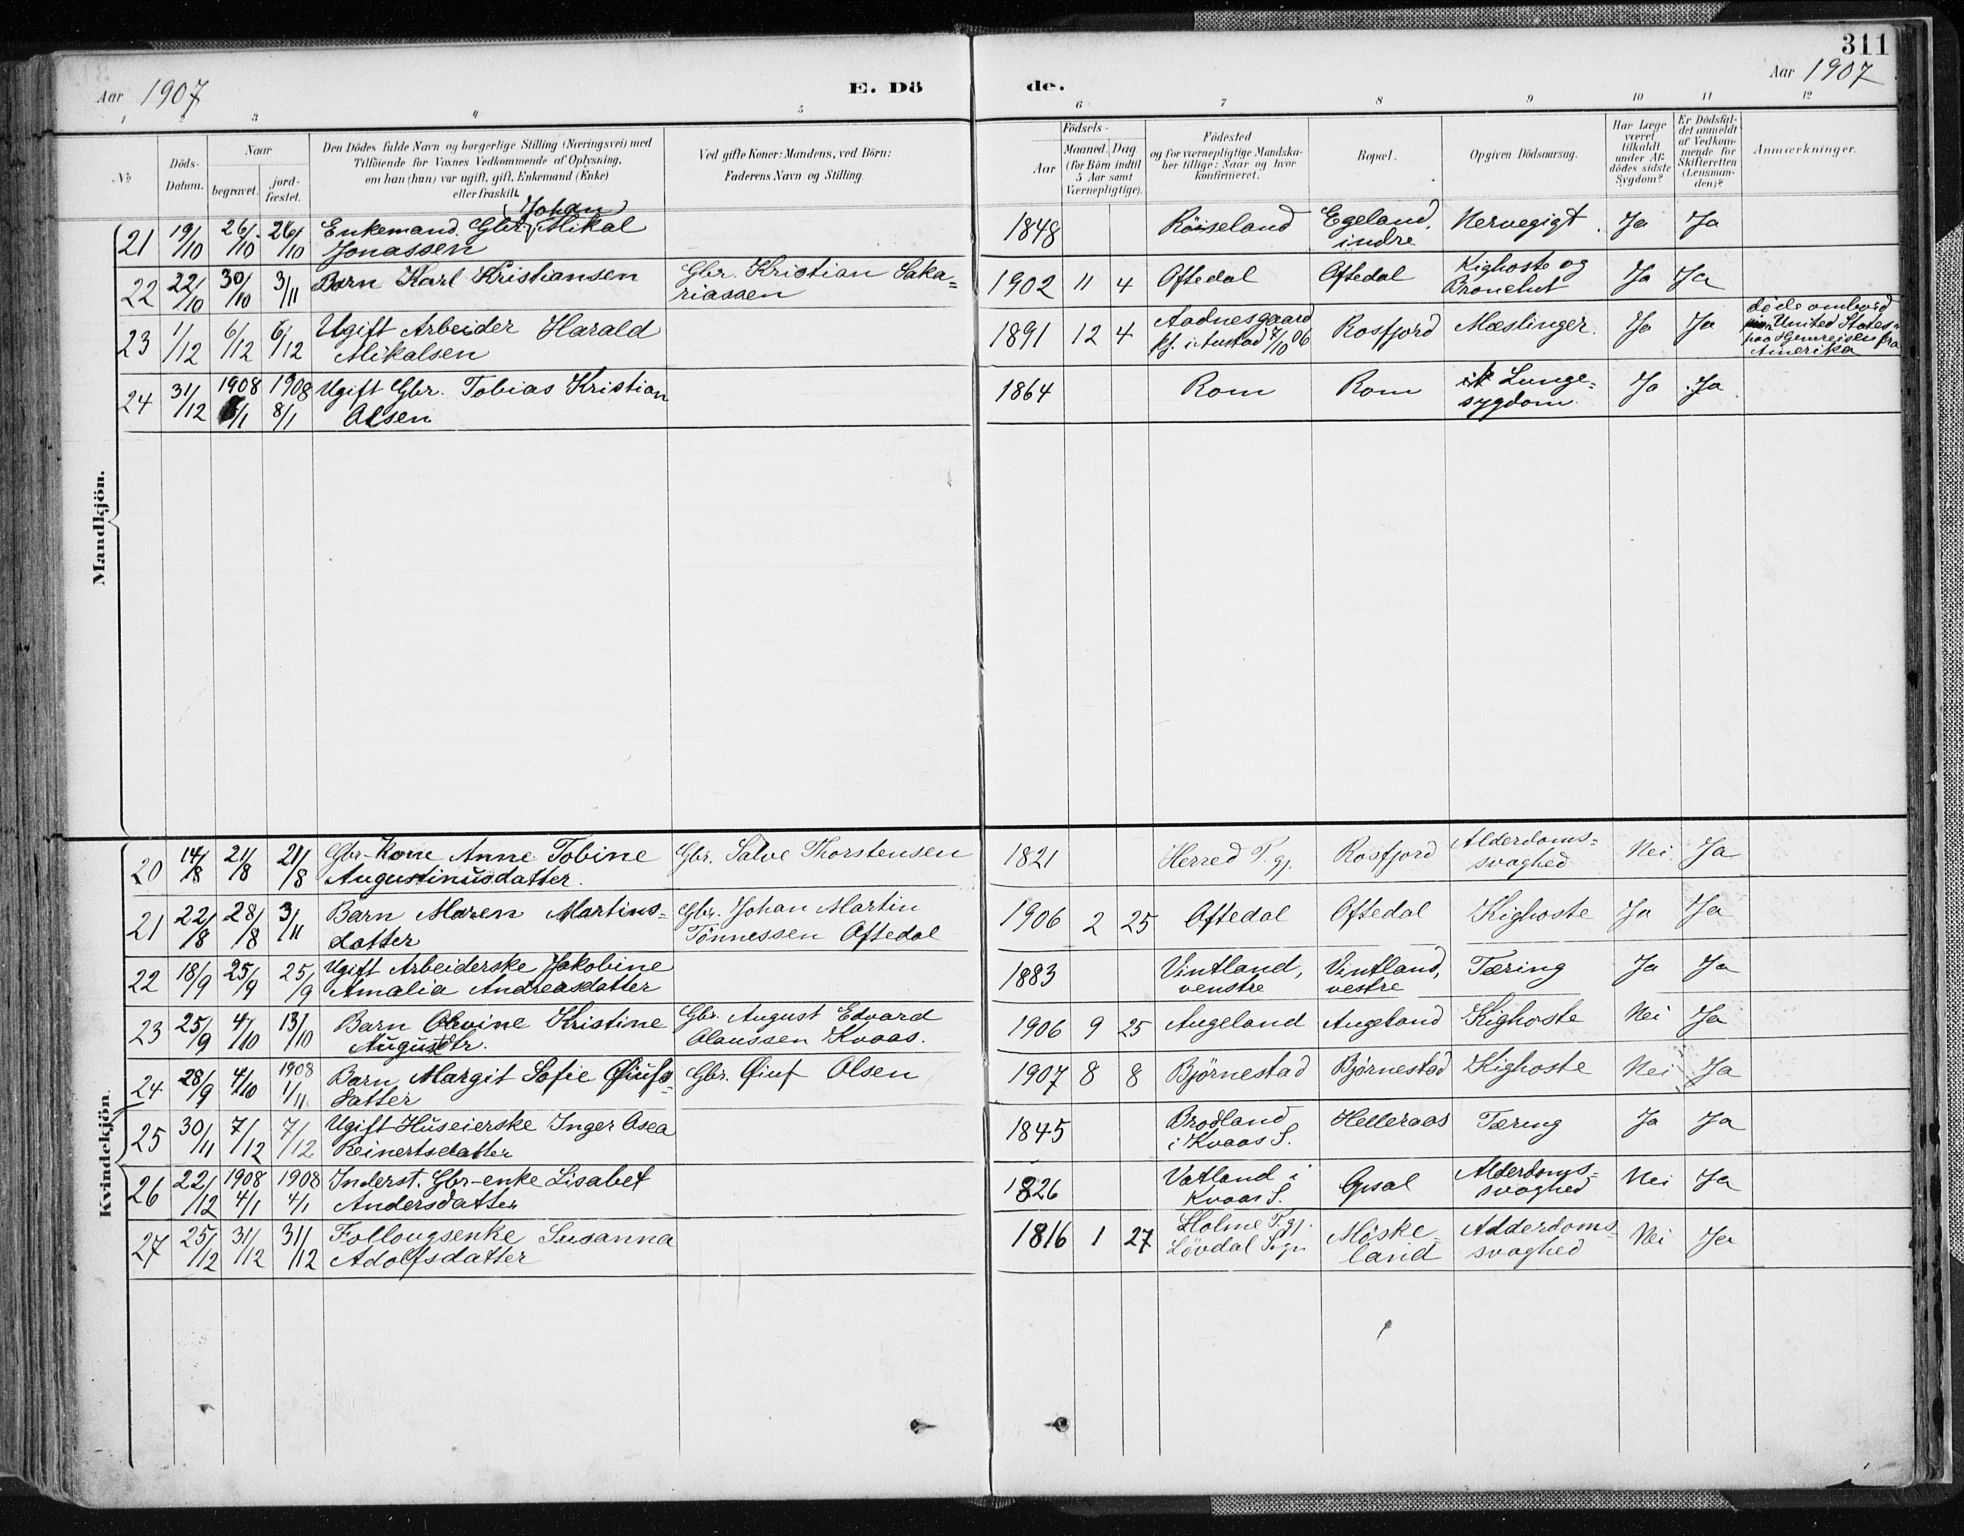 311
Aar 1907
E. Dö
de.
Aar 1907
1 2 3 4 5 6 7 8 9 10 11 12
№
Döds-
Datum.
Naar
begravet.
jord-
fæstet.
Den Dödes fulde Navn og borgerlige Stilling (Næringsvei) med
Tilföiende for Voxnes Vedkommende af Oplysning,
om han (hun) var ugift, gift, Enkemand (Enke)
eller fraskilt.
Ved gifte Koner: Mandens, ved Börn:
Faderens Navn og Stilling.
Födsels-
Aar
Maaned. Dag
(for Börn indtil
5 Aar samt
Værnepligtige).
Födested
og for værnepligtige Mandska-
ber tillige: Naar og hvor
konfirmeret.
Bopæl.
Opgiven Dödsaarsag.
Har Læge
været
tilkaldt
under Af-
dödes sidste
Sygdom?
Er Dödsfal-
det anmeldt
af Vedkom-
mende for
Skifteretten
(Lensman-
den)?
Anmærkninger.
Mandkjön.
21 19/10 26/10 26/10 Enkemand. Gbr. Johan Mikal
Jonassen
1848 Röiseland Egeland, indre Nervegigt. Ja Ja
22 22/10 30/10 3/11 Barn Karl Kristiansen Gbr. Kristian Saka=
riassen
1902 11 4 Oftedal Oftedal Kighoste og
Bronchit Ja Ja
23 1/12 6/12 6/12 Ugift Arbeider Harald
Mikalsen
1891 12 4 Aadnesgaard
kf. i Austad 7/10 06 Rosfjord Mæslinger. Ja Ja
döde ombord
United States
paa Hjemreisen fra
Amerika
24 31/12 1908 /1 1908 8/1 Ugift Gbr. Tobias Kristian
Olsen
1864 Rom Rom Lunge=
sygdom. Ja Ja
Kvindekjön.
20 14/8 21/8 21/8 Gbr-Kone Anne Tobine
Augustinusdatter. Gbr. Salve Thorstensen
1821 Herred P.gj. Rosfjord Alderdoms=
svaghed Nei Ja
21 22/8 28/8 3/11 Barn Maren Martins=
datter Gbr. Johan Martin
Tönnessen Oftedal
1906 2 25 Oftedal Oftedal Kighoste Ja Ja
22 18/9 25/9 25/9 Ugift Arbeiderske Jakobine
Amalia Andreasdatter
1883 Vintland,
venstre Vintland,
vestre Tæring Ja Ja
23 25/9 4/10 13/10 Barn Olevine Kristine
Augustdtr. Gbr. August Edvard
Olaussen Kvaas.
1906 9 25 Augeland Augeland Kighoste Nei Ja
24 28/9 4/10 1908 1/11 Barn Margit Sofie Øiufs=
datter Gbr. Øiuf Olsen
1907 8 8 Björnestad Björnestad Kighoste Nei Ja
25 30/11 7/12 7/12 Ugift Huseierske Inger Asea
Reinertsdatter
1845 Brodland
i Kvaas S. Helleraas Tæring Ja Ja
26 22/12 1908 4/1 1908 4/1 Inderst. Gbr-enke Lisabet
Andersdatter
1826 Vatland i
Kvaas S. Opsal Alderdoms=
svaghed Nei Ja
27 25/12 31/12 31/12 Follougsenke Susanna
Adolfsdatter
1816 1 27 Holme P.gj.
Lövdal Sogn Möske-
land Alderdoms
svaghed Nei Ja